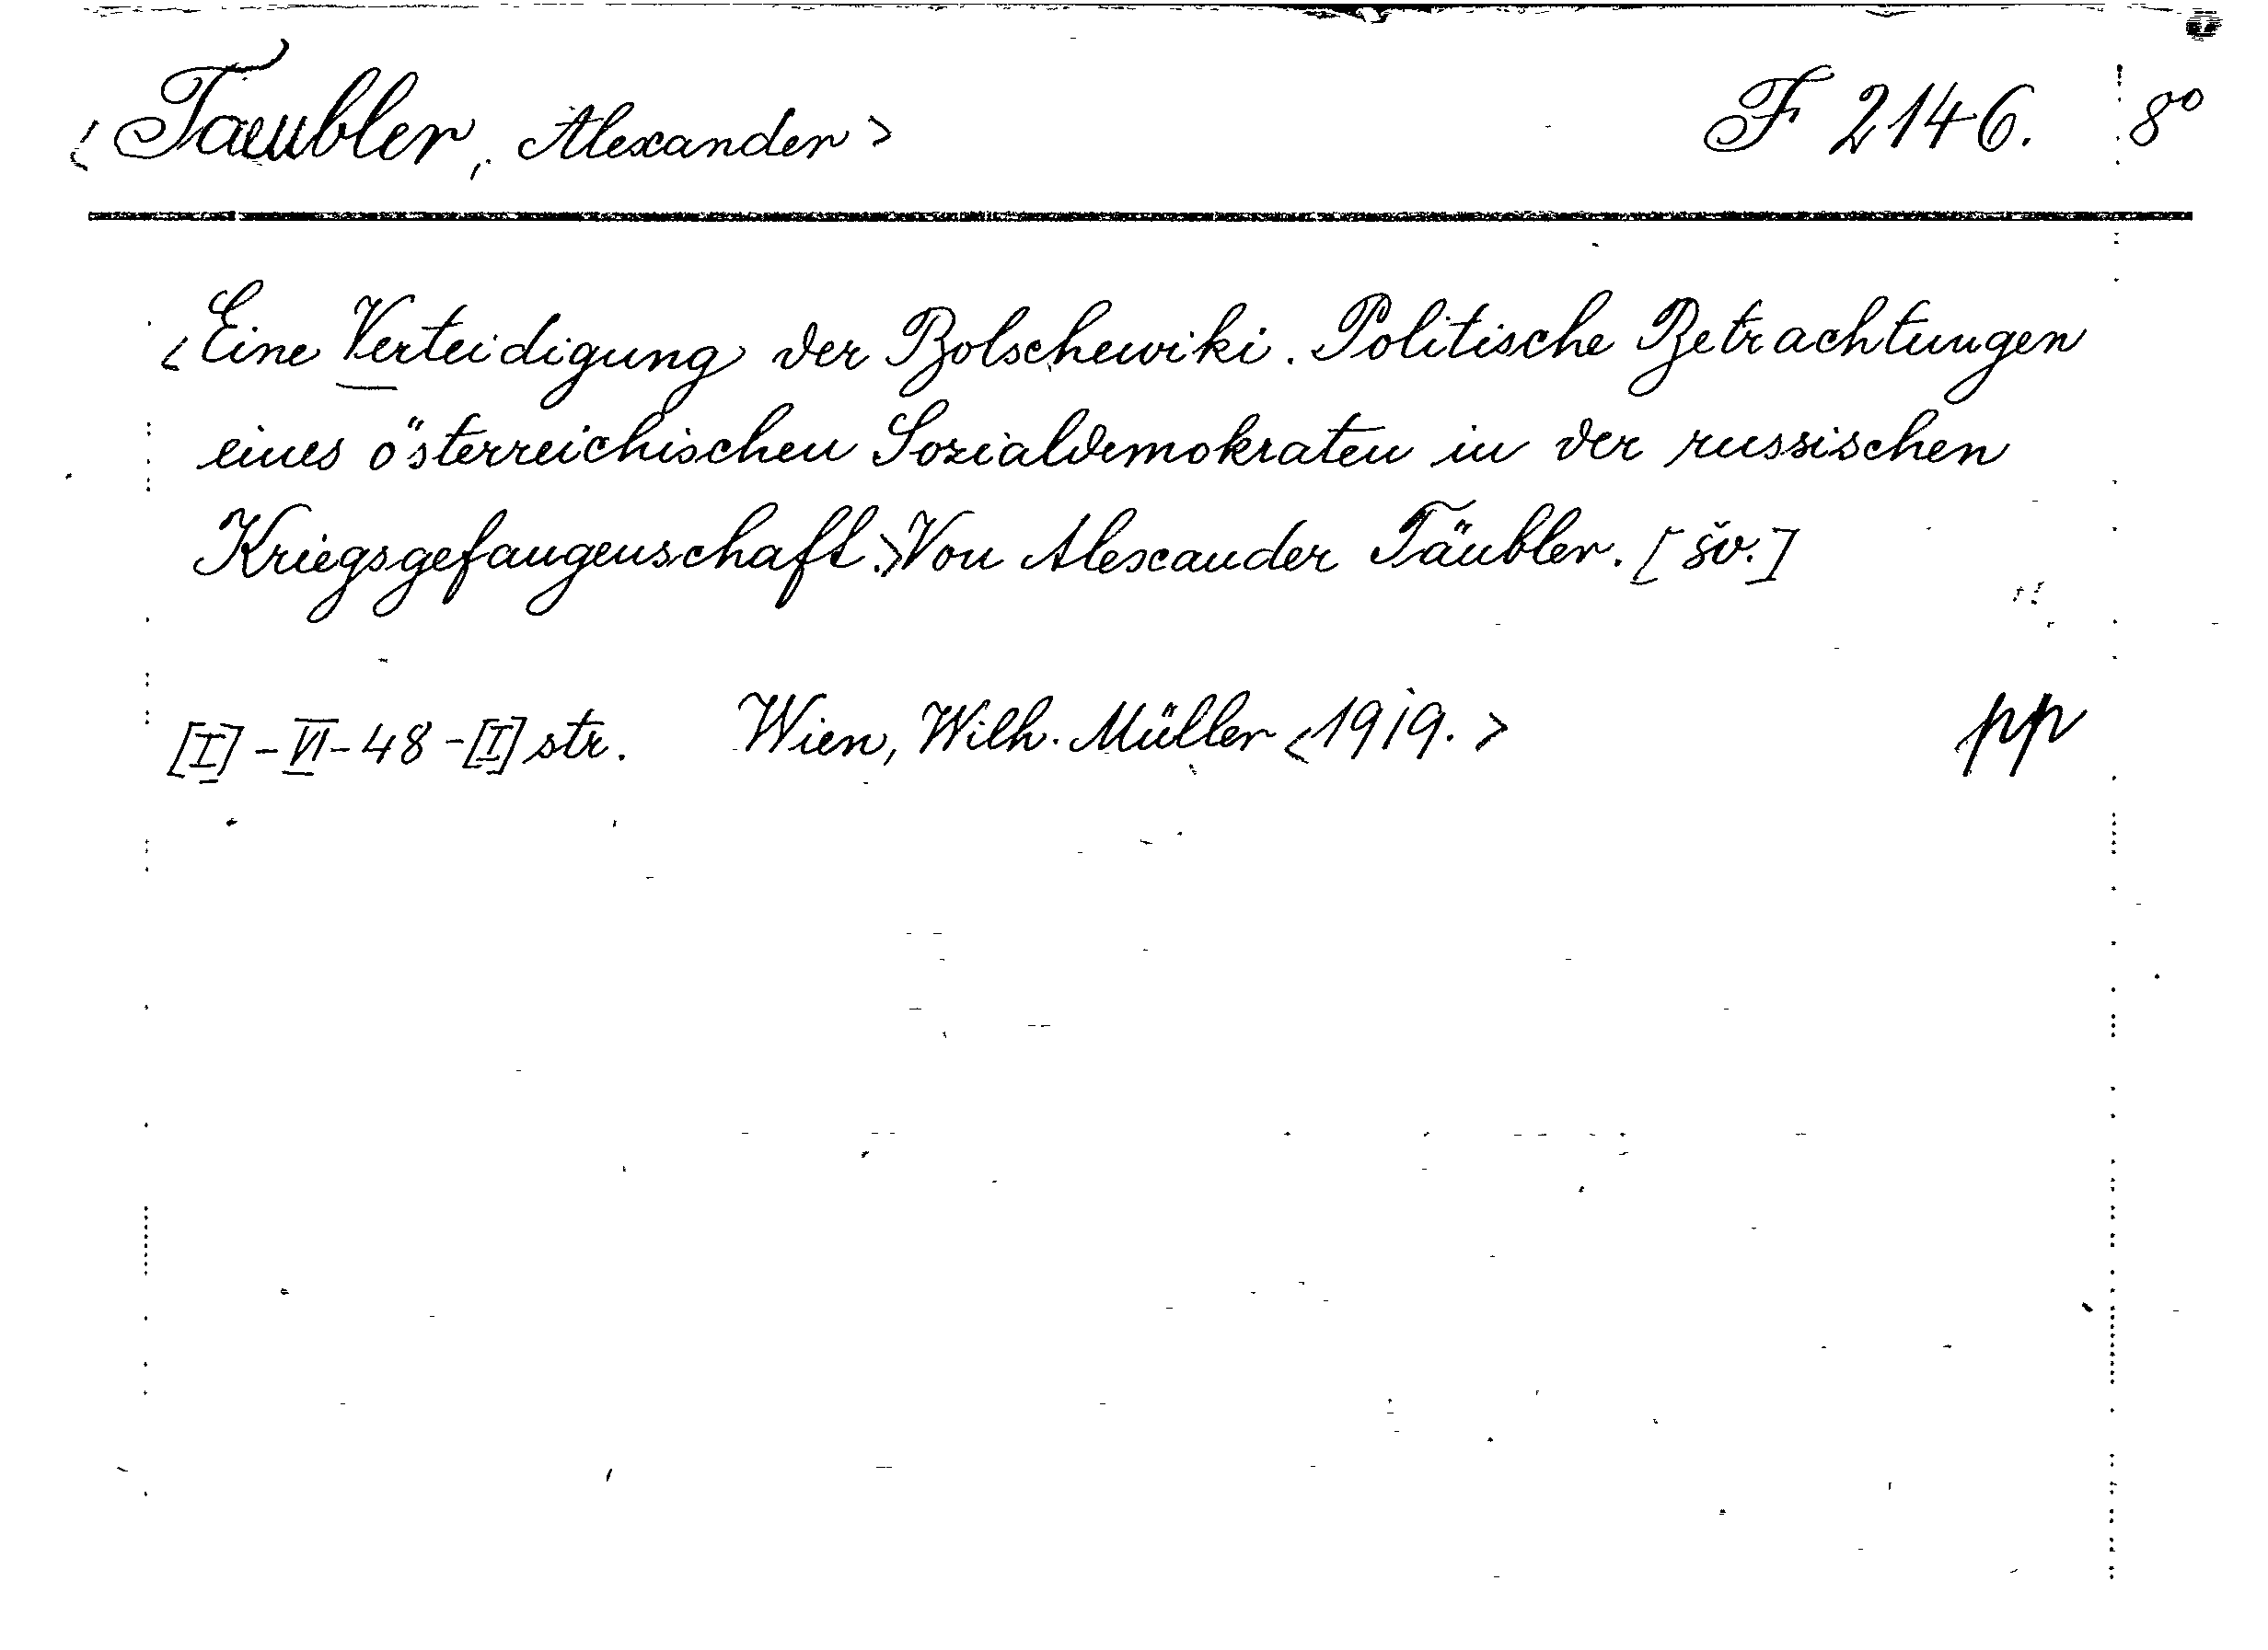 <Taeubler, Alexander> F 2146. 8°
<Eine Verteidigung der Bolschewiki. Politische Betrachtungen
eines österreichischen Sozialdemokraten in der russischen
Kriegsgefangenschaft.> Von Alexander Täubler. [šv.]
[I]-VI-48-[I] str. Wien, Wilh. Müller <1919.> pp